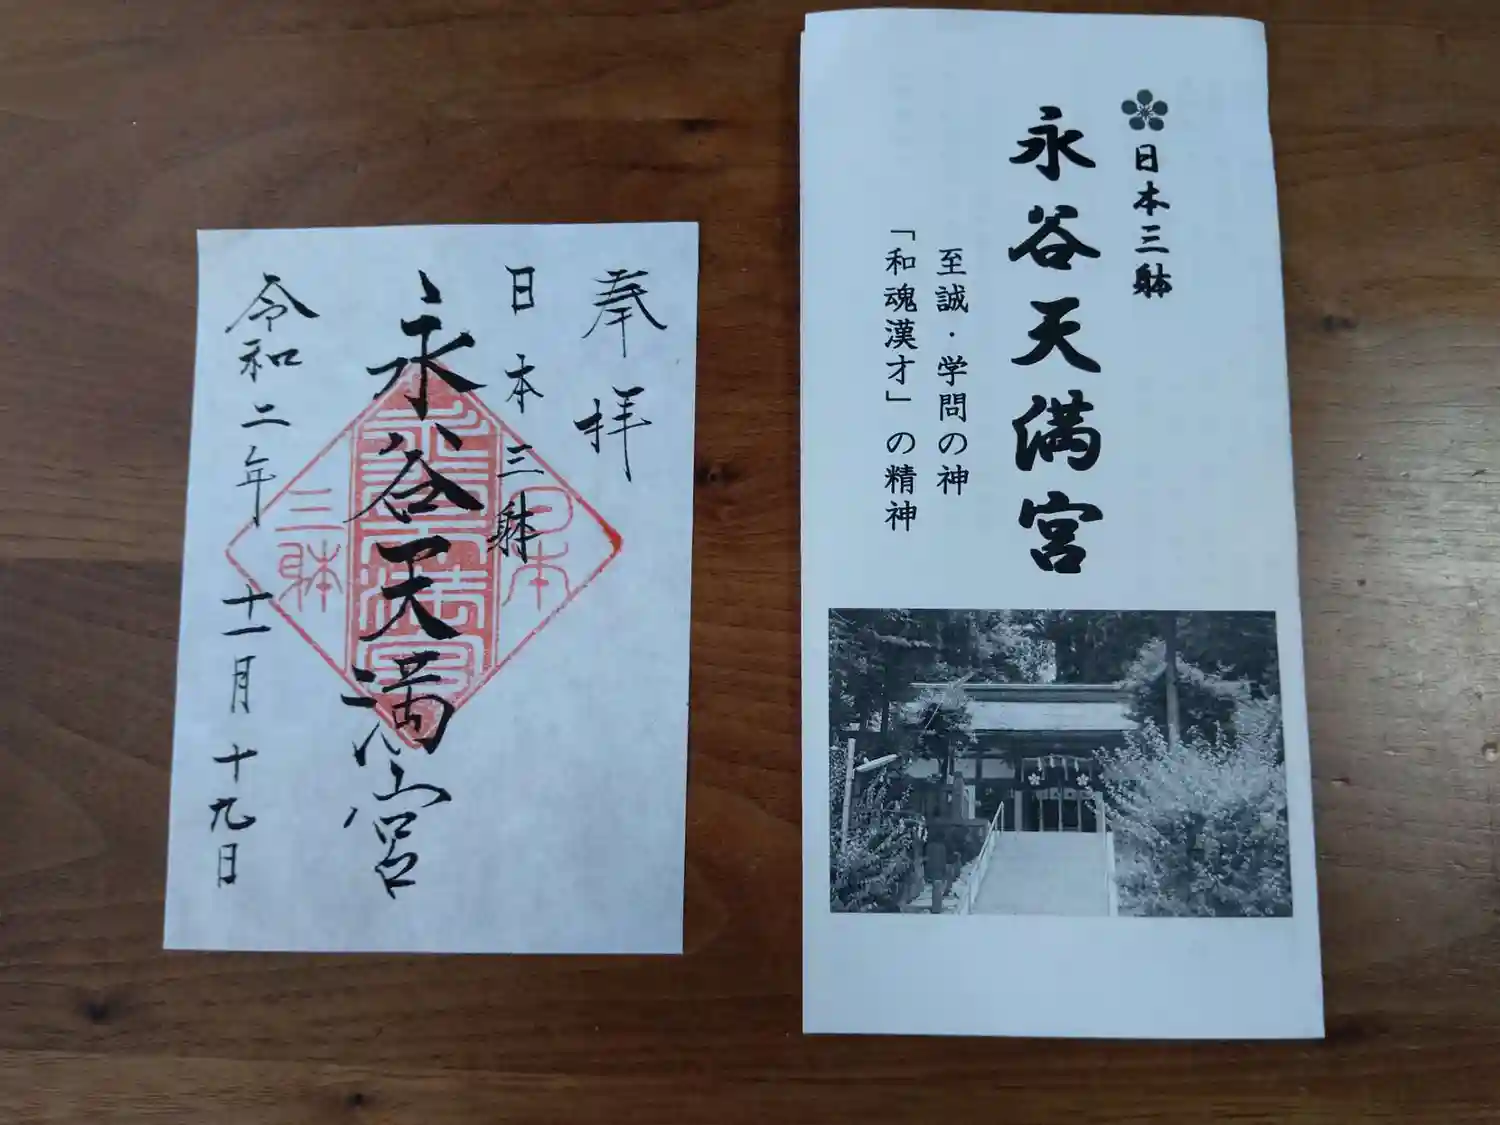 奉拝
日本三躰
永谷天満宮
令和二年十一月十九日
日本
永谷天満宮
三躰
日本三躰
永谷天満宮
至誠・学問の神
「和魂漢才」の精神